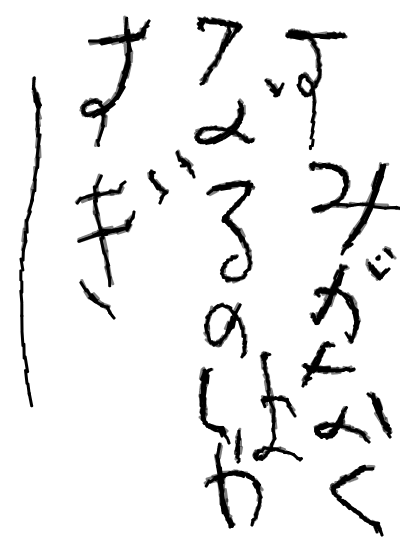 すみがなく
なるのはや
すぎー